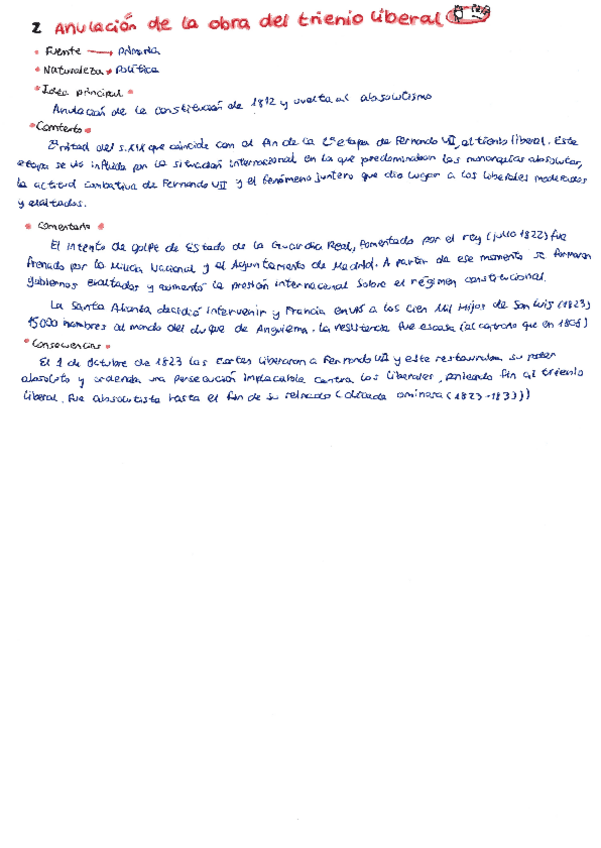 2 Anulación de la obra del trienio liberal
• Fuente → primaria
• Naturaleza → Política
• Idea principal •
Anulación de la constitución de 1812 y vuelta al absolutismo
• Contexto •
mitad del s.XIX que coincide con el fin de la 2ª etapa de Fernando VII, el trienio liberal. Este
etapa se ve influida por la situación internacional en la que predominaban las monarquías absolutas,
la actitud combativa de Fernando VII y el fenómeno juntero que dio lugar a los liberales moderados
y exaltados.
• Comentario •
El intento de golpe de Estado de la Guardia Real, fomentado por el rey (julio 1822) fue
frenado por la Milicia Nacional y el Ayuntamiento de Madrid. A partir de ese momento se formaron
gobiernos exaltados y aumentó la presión internacional sobre el régimen constitucional.
La Santa Alianza decidió intervenir y Francia envió a los Cien Mil Hijos de San Luis (1823)
95000 hombres al mando del duque de Angulema. La resistencia fue escasa (al contrario que en 1808)
• Consecuencias •
El 1 de Octubre de 1823 las cortes liberaron a Fernando VII y este su poder
absoluto y una persecución implacable contra los liberales, poniendo fin al trienio
liberal. Fue absolutista hasta el fin de su reinado (década ominosa (1823-1833))